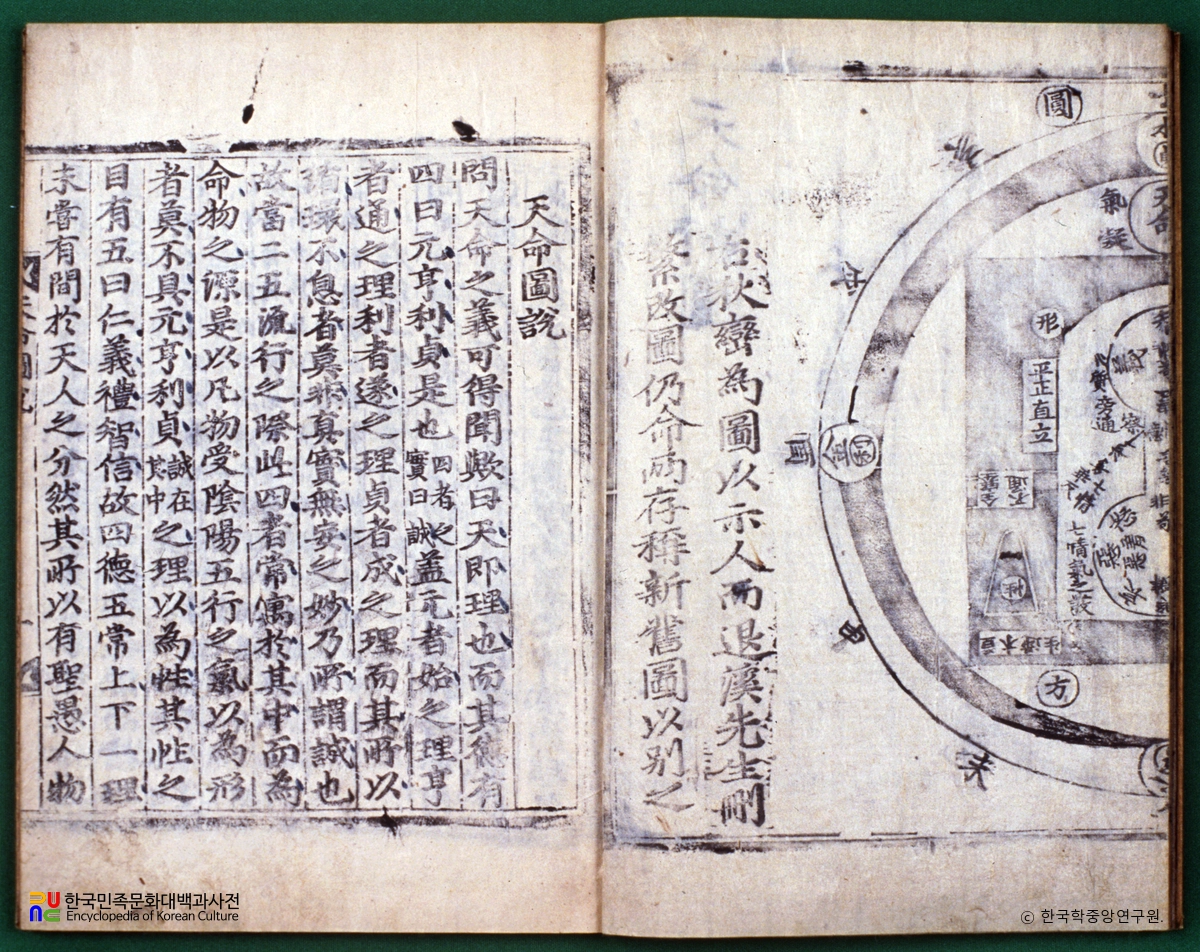 圓
天命
氣凝
形
平正直立
旁通
七情氣之發
性
方
利
金
酉
未
右秋巒為圖以示人而退溪先生刪
繁改圖仍命兩存稱新舊圖以別之
天命圖說
問天命之義可得聞歟曰天即理也而其德有
四曰元亨利貞是也四者之實曰誠蓋元者始之理亨
者通之理利者遂之理貞者成之理而其所以
循環不息者莫非真實無妄之妙乃所謂誠也
故當二五流行之際此四者常寓於其中而為
命物之源是以凡物受陰陽五行之氣以為形
者莫不具元亨利貞誠在其中之理以為性其性之
目有五曰仁義禮智信故四德五常上下一理
未嘗有間於天人之分然其所以有聖愚人物
한국민족문화대백과사전
Encyclopedia of Korean Culture
© 한국학중앙연구원.